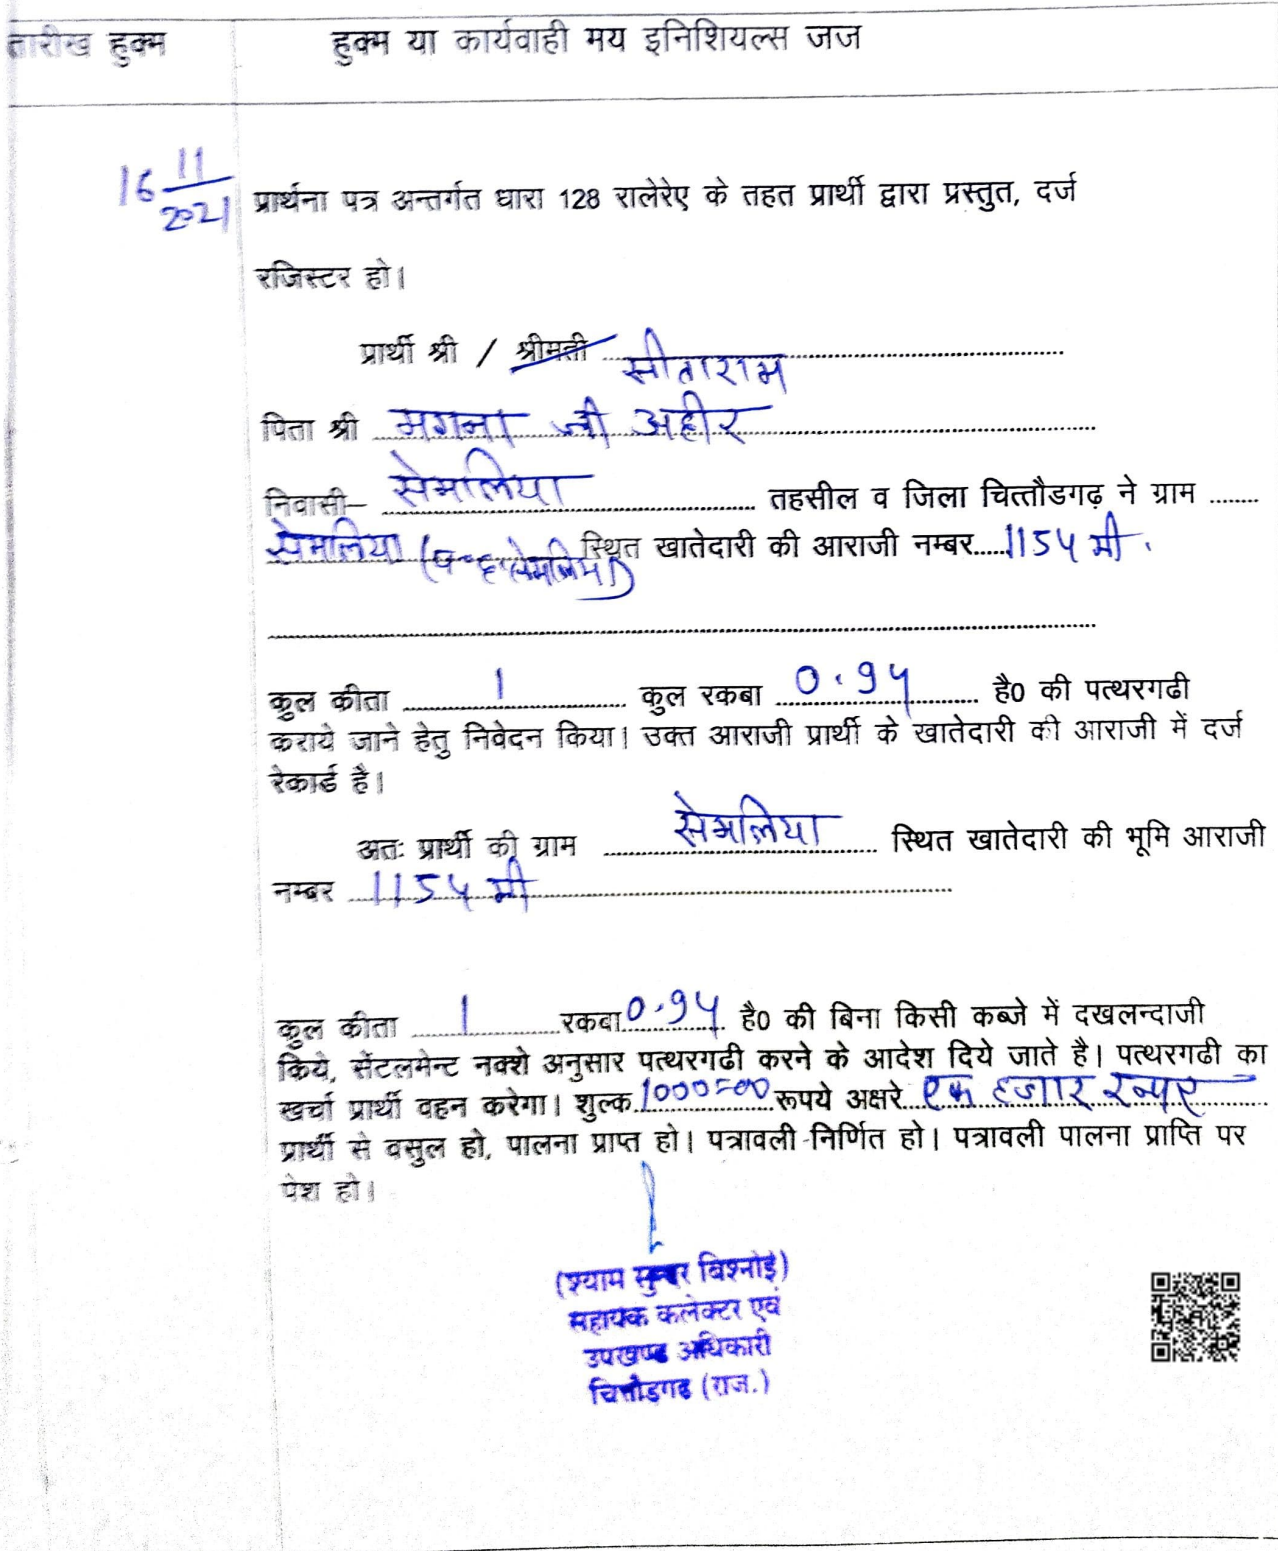 तारीख हुक्म हुक्म या कार्यवाही मय इनिशियल्स जज
16 11/2021 प्रार्थना पत्र अन्तर्गत धारा 128 रालेरेए के तहत प्रार्थी द्वारा प्रस्तुत, दर्ज
रजिस्टर हो।
प्रार्थी श्री / श्रीमती सीताराम
पिता श्री मगना जी अहीर
निवासी– सेमलिया तहसील व जिला चित्तौडगढ़ ने ग्राम
सेमलिया स्थित खातेदारी की आराजी नम्बर 1154 मी.
कुल कीता 1 कुल रकबा 0.94 है0 की पत्थरगढी
कराये जाने हेतु निवेदन किया। उक्त आराजी प्रार्थी के खातेदारी की आराजी में दर्ज
रेकार्ड है।
अतः प्रार्थी की ग्राम सेमलिया स्थित खातेदारी की भूमि आराजी
नम्बर 1154 मी
कुल कीता 1 रकबा 0.94 है0 की बिना किसी कब्जे में दखलन्दाजी
किये, सेंटलमेन्ट नक्शे अनुसार पत्थरगढी करने के आदेश दिये जाते है। पत्थरगढी का
खर्चा प्रार्थी वहन करेगा। शुल्क 1000=00 रूपये अक्षरे एक हजार रूपए
प्रार्थी से वसुल हो, पालना प्राप्त हो। पत्रावली निर्णित हो। पत्रावली पालना प्राप्ति पर
पेश हो।
(श्याम सुन्दर बिश्नोई)
सहायक कलेक्टर एवं
उपखण्ड अधिकारी
चित्तौडगढ (राज.)